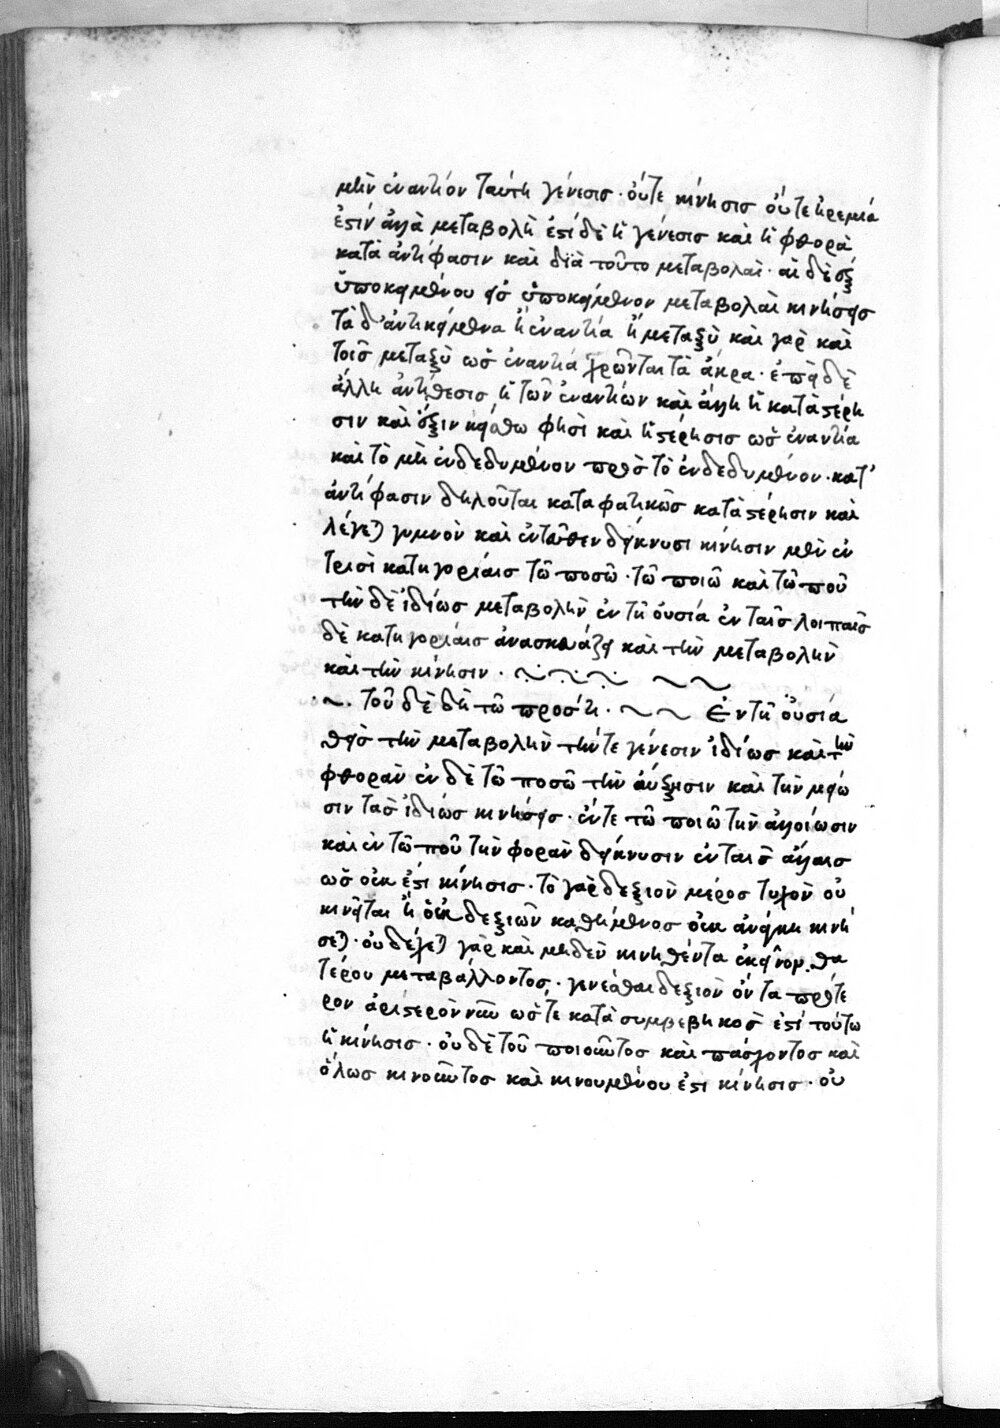 μὴν ἐναντίον ταύτη γένεσις · οὔτε κίνησις οὔτε ἠρεμία
ἐστίν ἀλλὰ μεταβολὴ ἐστί δὲ ἡ γένεσις καὶ ἡ φθορὰ
κατὰ ἀντίφασιν καὶ διὰ τοῦτο μεταβολαὶ · αἱ δὲ ἐξ
ὑποκειμένου εἰς ὑποκείμενον μεταβολαὶ κινήσεις
τὰ δ' ἀντικείμενα ἢ ἐναντία ἢ μεταξὺ καὶ γὰρ καὶ
τοῖς μεταξὺ ὡς ἐναντία χρῶνται τὰ ἄκρα · ἐπεὶ δὲ
ἄλλη ἀντίθεσις ἡ τῶν ἐναντίων καὶ ἄλλη ἡ κατὰ στέρη
σιν καὶ ἕξιν κείσθω φησὶ καὶ ἡ στέρησις ὡς ἐναντία
καὶ τὸ μὴ ἐνδεδυμένον πρὸς τὸ ἐνδεδυμένον · κατ'
ἀντίφασιν δηλοῦται καταφατικῶς κατὰ στέρησιν καὶ
λέγεται γυμνὸν καὶ ἐντεῦθεν δείκνυσι κίνησιν μὲν ἐν
τρισὶ κατηγορίαις τῶ ποσῶ · τῶ ποιῶ καὶ τῶ ποῦ
τὴν δὲ ἰδίως μεταβολὴν ἐν τῆ οὐσία ἐν ταῖς λοιπαῖς
δὲ κατηγορίαις ἀνασκευάζει καὶ τὴν μεταβολὴν
καὶ τὴν κίνησιν ·
τοῦ δὲ δὴ τῶ πρός τι · Ἐν τῆ οὐσία
θεὶς τὴν μεταβολὴν τήν τε γένεσιν ἰδίως καὶ τὴν
φθορὰν ἐν δὲ τῶ ποσῶ τὴν αὔξησιν καὶ τὴν μείω
σιν τὰς ἰδίως κινήσεις · ἔν τε τῶ ποιῶ τὴν ἀλλοίωσιν
καὶ ἐν τῶ ποῦ τὴν φορὰν δείκνυσιν ἐν ταῖς ἄλλαις
ὡς οὐκ ἔστι κίνησις · τὸ γὰρ δεξιὸν μέρος τυχὸν οὐ
κινεῖται ἢ ὁ ἐκ δεξιῶν καθήμενος οὐκ ἀνάγκη κινή
σεται · οὐ δέχεται γὰρ καὶ μηδὲν κινηθέντα ἐκεῖνον θα
τέρου μεταβάλλοντος · γενέσθαι δεξιὸν ὄντα πρότε
ρον ἀριστερὸν νῦν ὥστε κατὰ συμβεβηκός ἐστί τούτω
ἡ κίνησις · οὐ δὲ τοῦ ποιοῦντος καὶ πάσχοντος καὶ
ὅλως κινοῦντος καὶ κινουμένου ἐστι κίνησις · οὐ